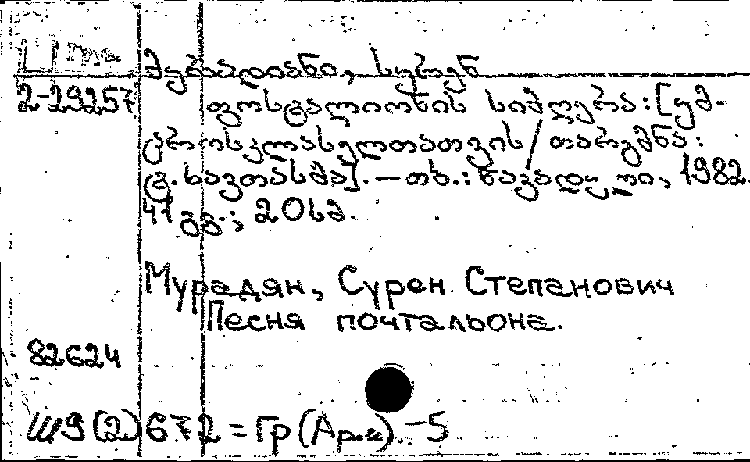 მურადიანი, სურენ
2-29257 ფოსტალიონის სიმღერა: [უმ-
ცროსკლასელთათვის / თარგმნა:
ნავთასმა]. – თბ.: ნაკადული, 1982.
41 გვ.; 20 სმ.
Мурадян, Сурен Степанович
Песня почтальона.
82624
Ш9(2)672=Гр(Арм).-5